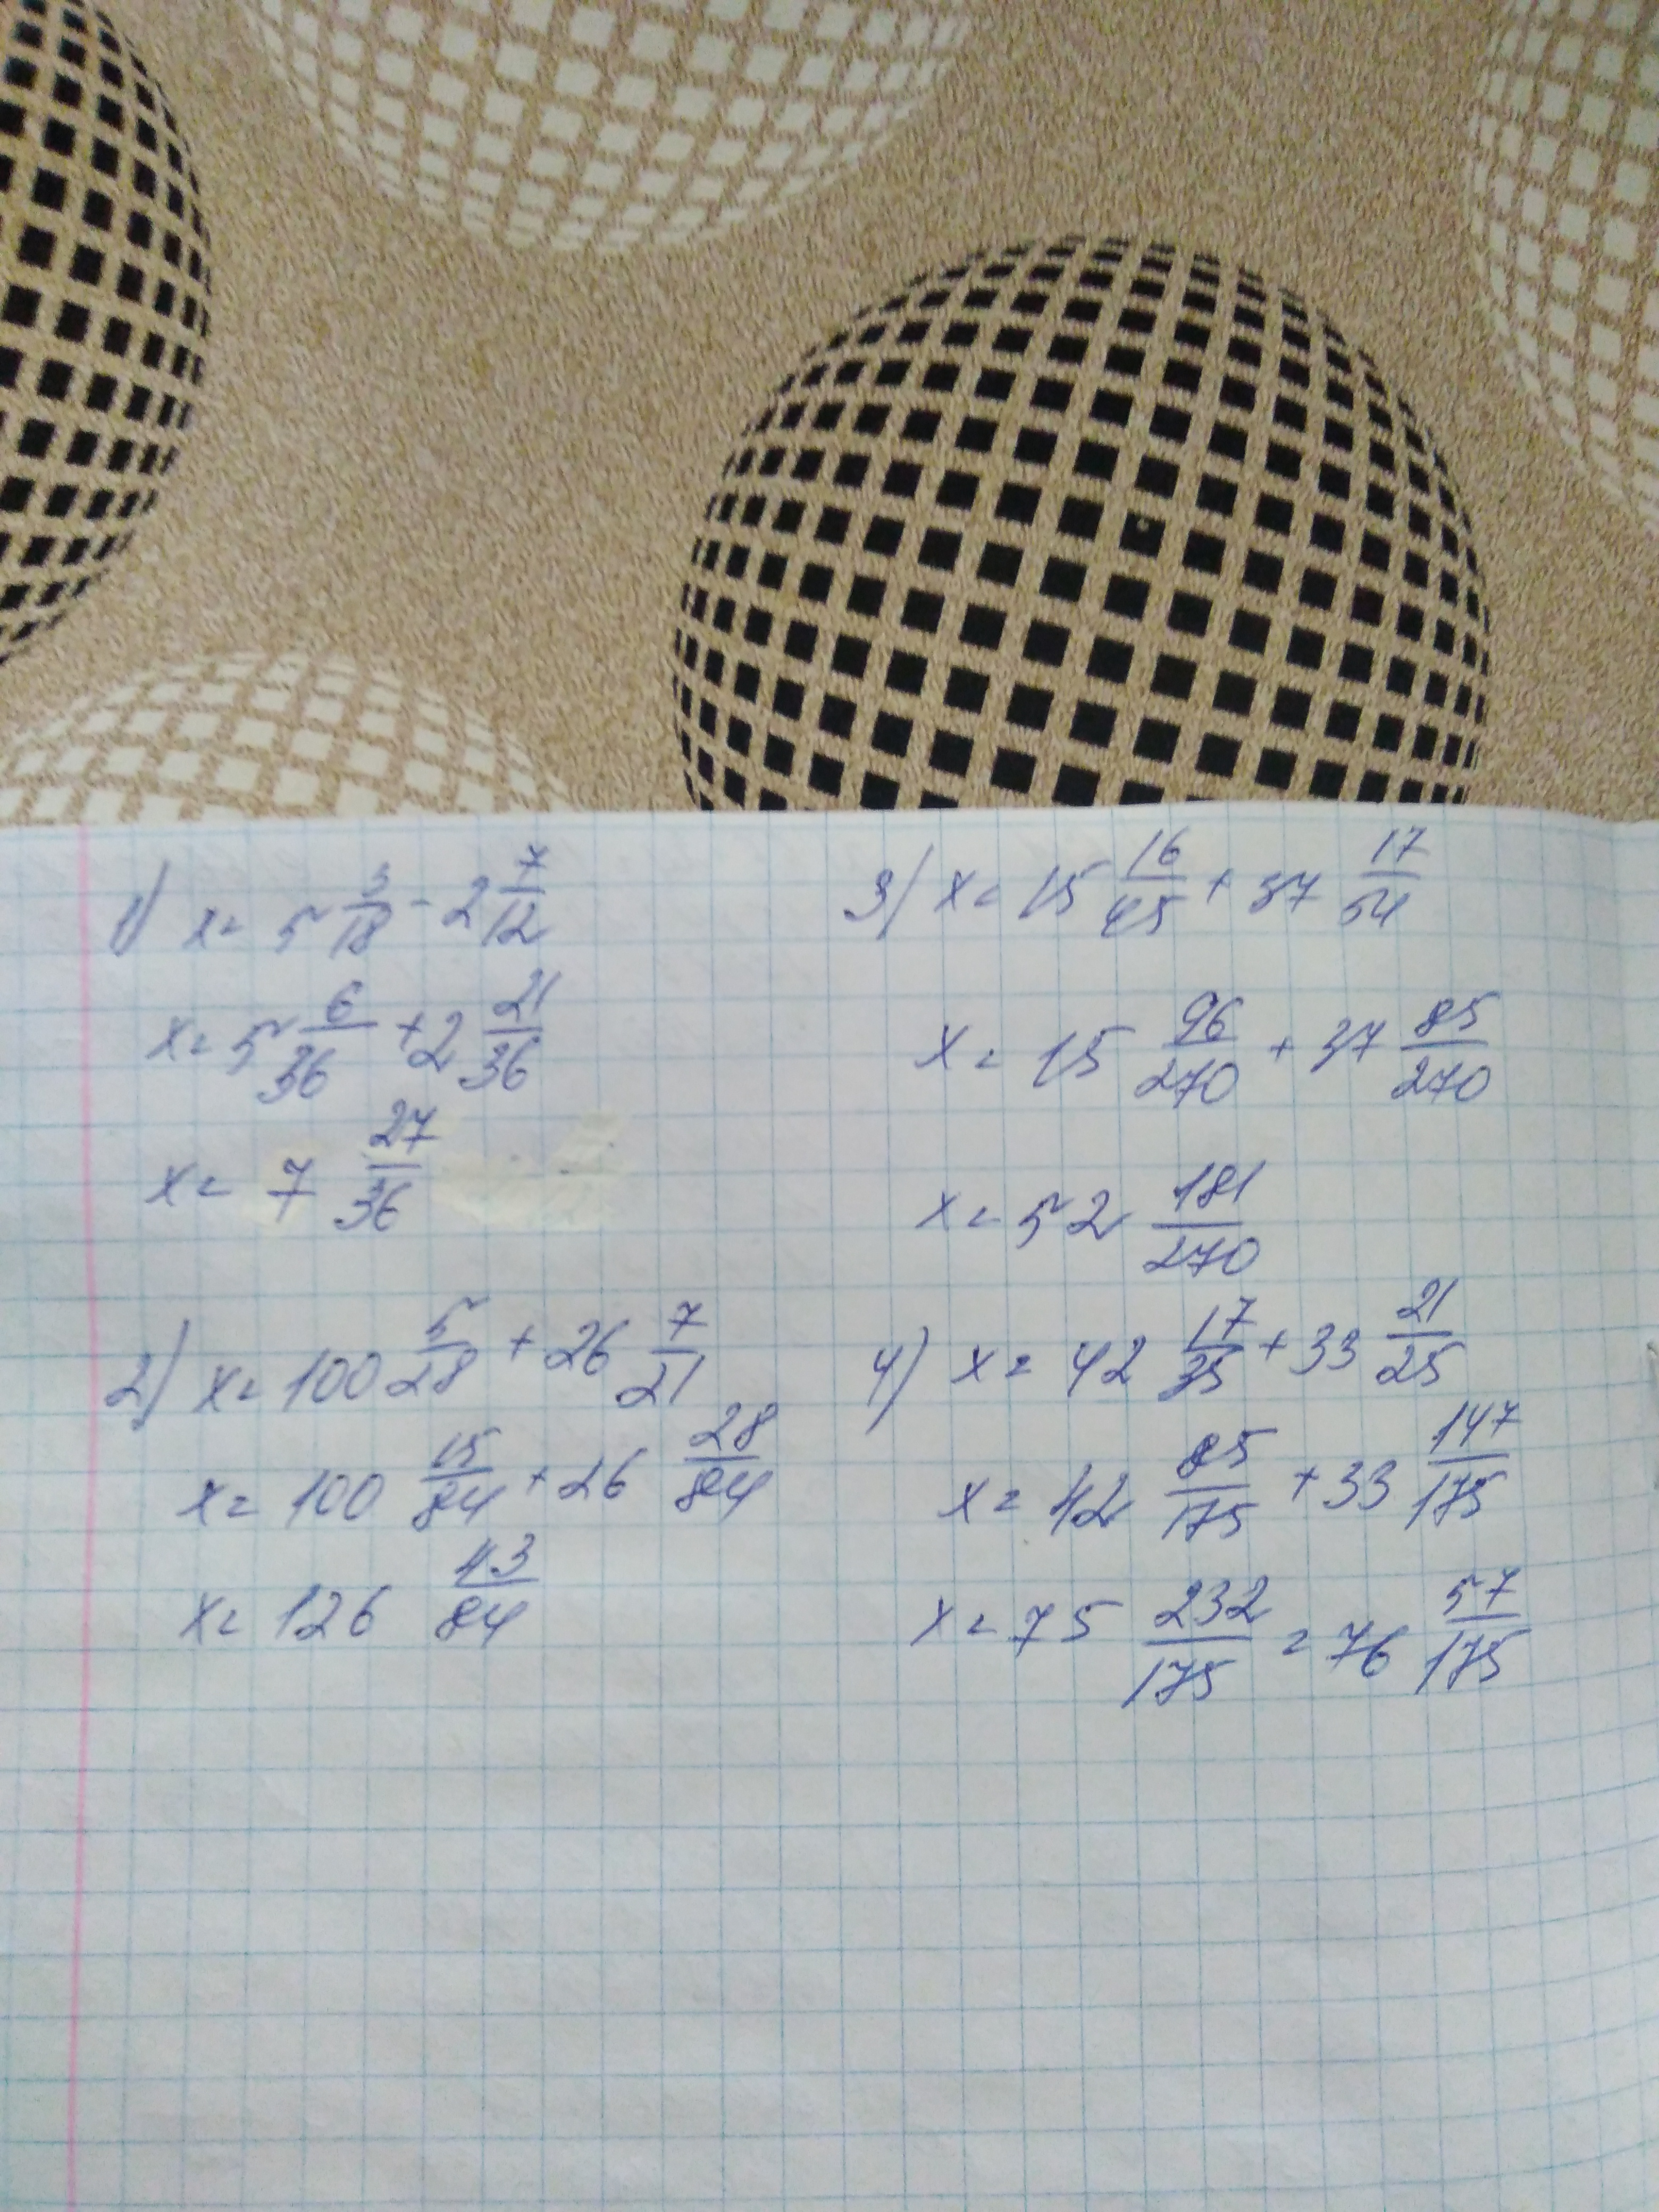 1) x= 5 3/18 - 2 7/12
x= 5 6/36 + 2 21/36
x= 7 27/36
2) x= 100 5/28 + 26 7/21
x= 100 15/84 + 26 28/84
x= 126 43/84
3) x= 15 16/45 + 37 17/54
x= 15 96/270 + 37 85/270
x= 52 181/270
4) x= 42 17/35 + 33 21/25
x= 42 85/175 + 33 147/175
x= 75 232/175 = 76 57/175